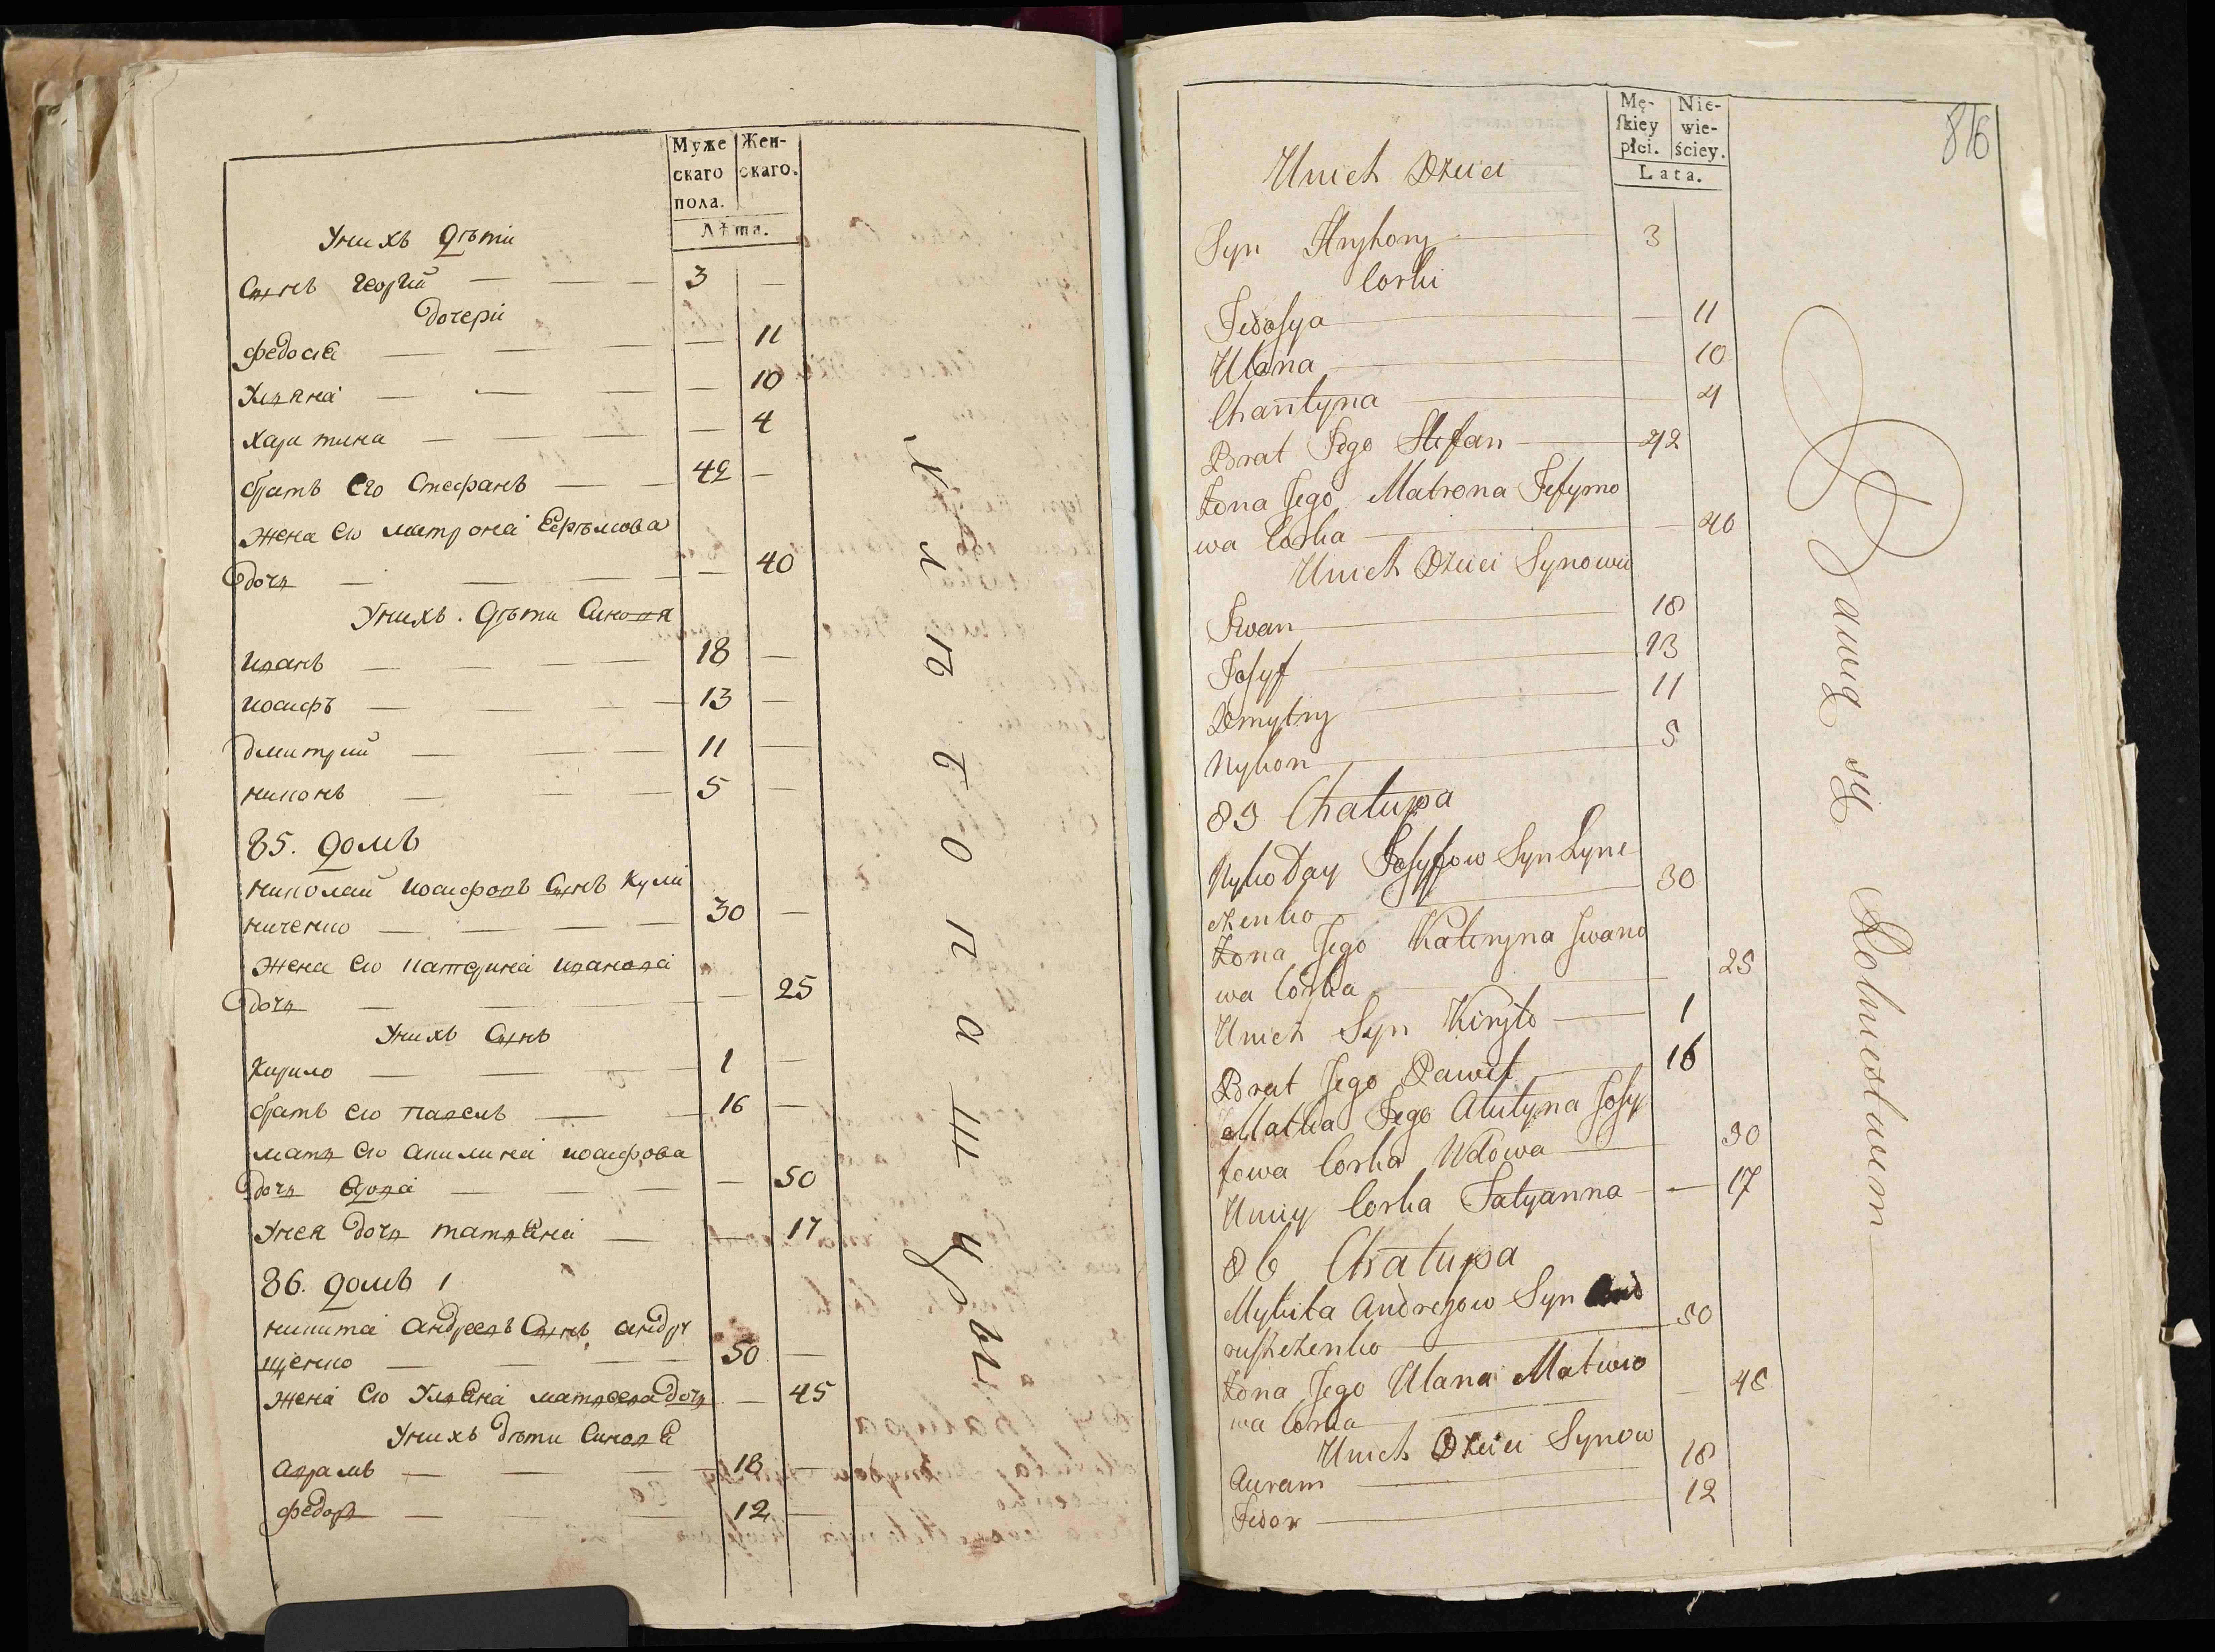 Муже
скаго
пола.
Жен-
скаго.
Лѣта.
Унихъ Дѣти
Сынъ Георгій — — — 3 —
дочери
Федосія — — — — 11
Уляна — — — — 10
Харитина — — — — 4
братъ Его Стефанъ — — 42 —
Жена Ею матрона Ефѣмова
дочь — — — — 40
Унихъ. Дѣти Синовя
Иванъ — — — — 18 —
Иосифъ — — — — 13 —
Дмитрий — — — 11 —
Никонъ — — — 5 —
85. Домъ
Николай Иосифовъ Сынъ Кули
ниченко — — — — 30 —
Жена Ею Катерина Иванова
дочь — — — 25
Унихъ Сынъ
Кирило — — — 1 —
братъ Ею Павелъ — — 16 —
мать Ею Акилина Иосифова
дочь вдова — — — — 50
Унея дочь татьяна — — 17
86. Домъ 1
Никита Андреевъ Сынъ Андру
щенко — — — — 50 —
Жена Ею Ульяна матвеева дочь — 45
Унихъ Дѣти Синовѣ
Аврамъ — — — 18 —
Федоръ — — — 12 —
Хлѣбопашцы
Mę-
ſkiey
płci.
Nie-
wie-
ściey.
Lata.
816
Unich Dzieci
Syn Hryhory — 3
Corki
Fedosya — — 11
Ulana — 10
Charytyna — 4
Brat Jego Stefan — 42
Zona Jego Matrona Jefymo
wa Corka — — 40
Unich Dzieci Synowie
Iwan — 18
Josyf — 13
Dmytry — 11
Nykon — 5
85 Chałupa
Nykołay Josyfow Syn Lyne
czenko — 30
Zona Jego Kateryna Iwano
wa Corka — 25
Unich Syn Kiryło — 1
Brat Jego Paweł — 16
Matka Jego Akulyna Josy
fowa Corka Wdowa — 50
Uniey Corka Tatyanna — — 17
86 Chałupa
Mykita Andrejow Syn And
ruszczenko — 50
Zona Jego Ulana Matwie
wa Corka — — 45
Unich Dzieci Synow
Auram — 18
Fedor — 12
Bawią się Rolnictwem